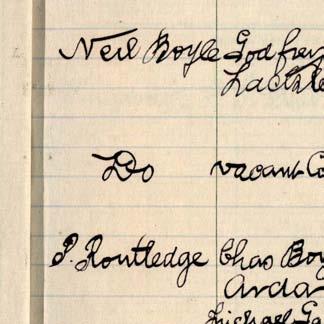 Neil Boyle Godfrey
Do vacant
P. Routledge Chas Boy
Arda
Michael Ga